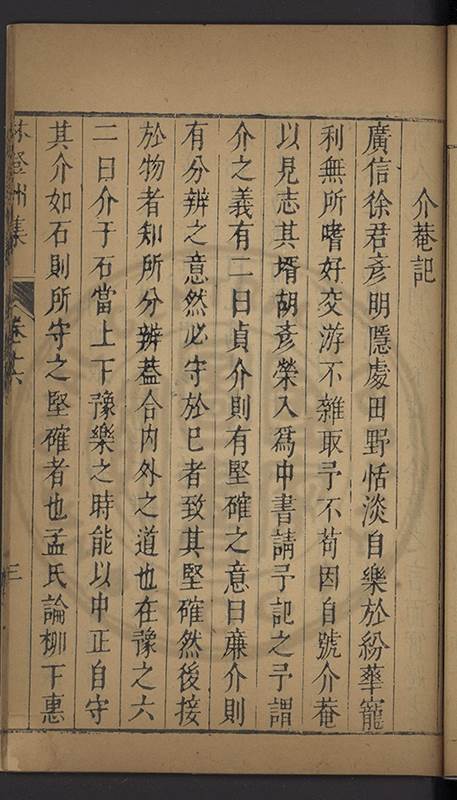 介菴記
廣信徐君彥明隱處田野恬淡自樂於紛華寵
利無所嗜好交游不雜取予不苟因自號介菴
以見志其壻胡彥榮入爲中書請予記之予謂
介之義有二曰貞介則有堅確之意曰廉介則
有分辨之意然必守於已者致其堅確然後接
於物者知所分辨葢合內外之道也在豫之六
二曰介于石當上下豫樂之時能以中正自守
其介如石則所守之堅確者也孟氏論柳下惠
林登州集
卷十六
三